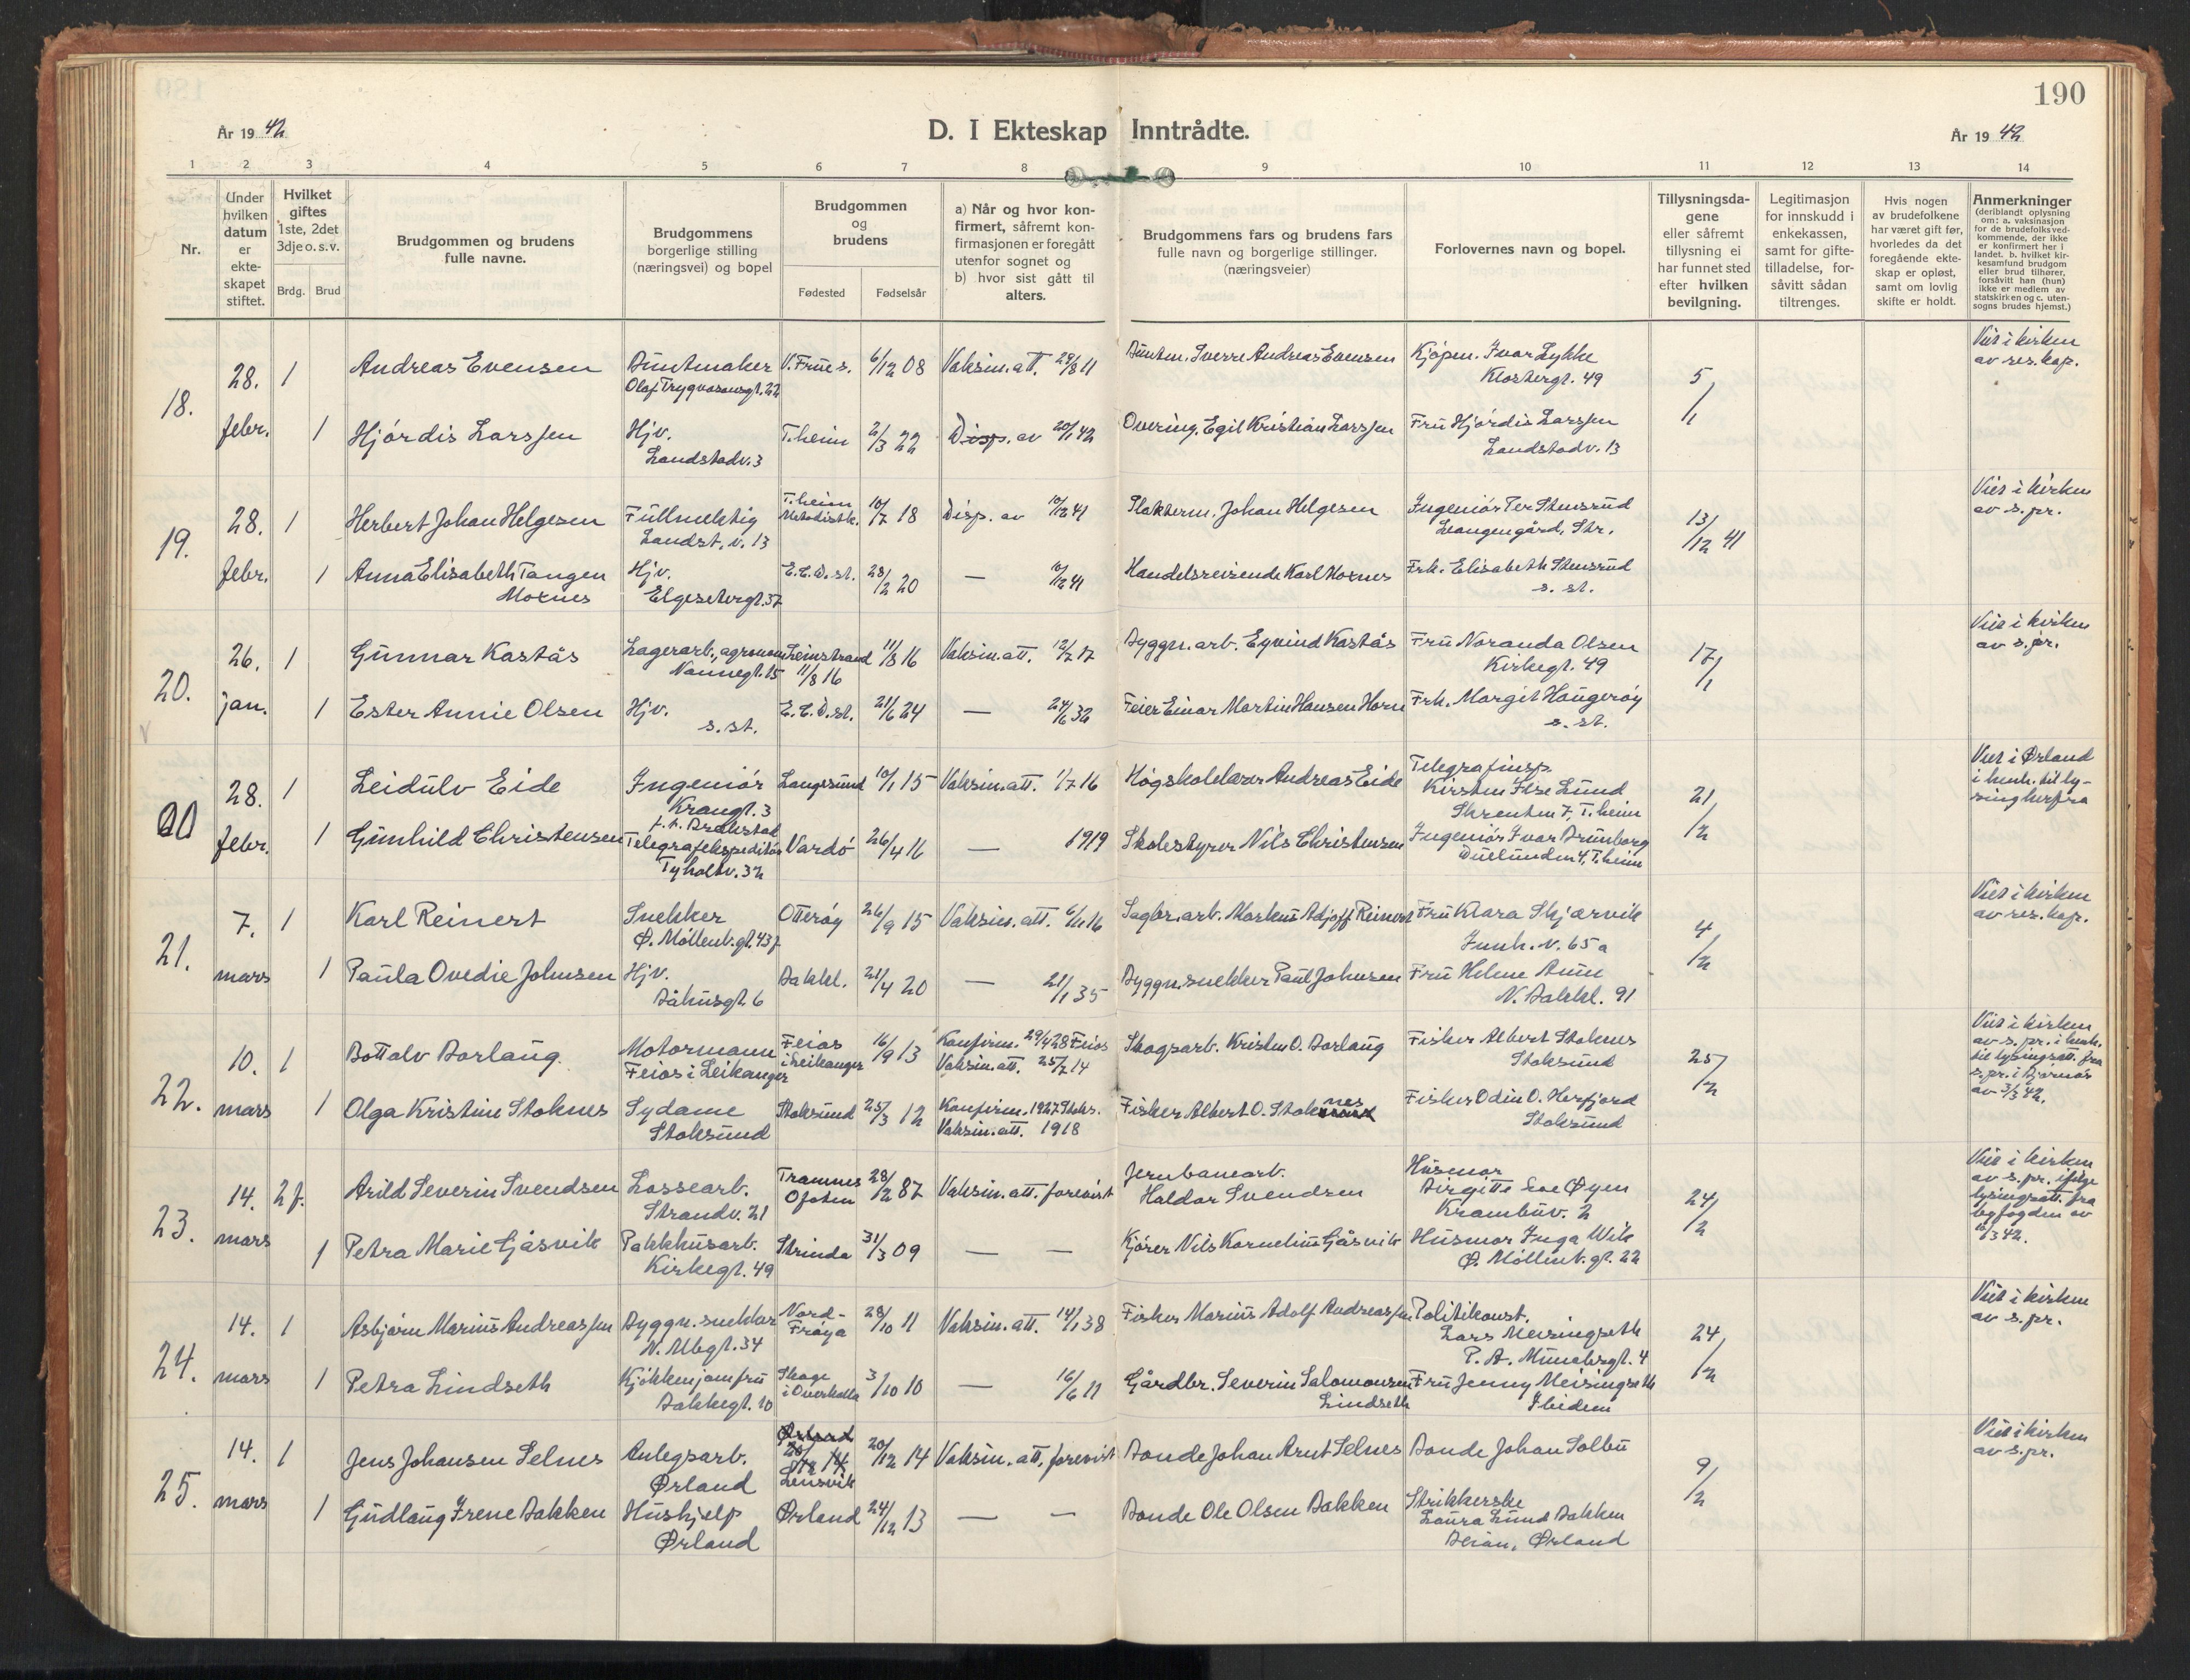 190
År 19 42
D. I Ekteskap Inntrådte.
År 19 42
1 2 3 4 5 6 7 8 9 10 11 12 13 14
Nr.
Under hvilken datum er ekteskapet stiftet.
Hvilket giftes 1ste, 2det 3dje o. s. v.
Brdg. Brud
Brudgommen og brudens fulle navne.
Brudgommens borgerlige stilling (næringsvei) og bopel
Brudgommen og brudens
Fødested Fødselsår
a) Når og hvor konfirmert, såfremt konfirmasjonen er foregått utenfor sognet og
b) hvor sist gått til alters.
Brudgommens fars og brudens fars fulle navn og borgerlige stillinger. (næringsveier)
Forlovernes navn og bopel.
Tillysningsdagene eller såfremt tillysning ei har funnet sted efter hvilken bevilgning.
Legitimasjon for innskudd i enkekassen, samt for giftetilladelse, forsåvitt sådan tiltrenges.
Hvis nogen av brudefolkene har været gift før, hvorledes da det foregående ekteskap er opløst, samt om lovlig skifte er holdt.
Anmerkninger (deriblandt oplysning om: a. vaksinasjon for de brudefolks vedkommende, der ikke er konfirmert her i landet. b. hvilket kirkesamfund brudgom eller brud tilhører, forsåvitt han (hun) ikke er medlem av statskirken og c. utensogns brudes hjemst.)
18. 28. febr. 1 Andreas Evensen Buntmaker V. Frue s. 6/12 08 Vaksin. att. 29/8 11 Buntm. Sverre Andreas Evensen Kjøpm. Ivar Lykke 5/1 Viet i kirken
Olaf Trygvasonsgt. 22 Klostergt. 49 av res. kap.
1 Hjørdis Larssen Hjv. T.heim 2/3 22 Disp. av 20/1 42 Overing. Egil Kristian Larssen Fru Hjørdis Larssen
Landstadv. 3 Landstadv. 13
19. 28. febr. 1 Herbert Johan Helgesen Fullmektig T.heim Metodistk. 10/7 18 Disp. av 10/12 41 Platerm. Johan Helgesen Ingeniør Per Stensrud 13/12 41 Viet i kirken
Landst. v. 13 Langengård, Str. av s. pr.
1 Anna Elisabeth Tangen Moxnes Hjv. E.C.D.st. 28/2 20 — 10/12 41 Handelsreisende Karl Moxnes Frk. Elisabeth Stensrud
Elgesetergt. 37 s. st.
20. 26. jan. 1 Gunnar Kastås Lagerarb., agronom Leinstrand 11/8 16 Vaksin. att. 12/7 17 Byggn. arb. Eyvind Kastås Fru Noranda Olsen 17/1 Viet i kirken
Nannegt. 15 11/8 16 Kirkegt. 49 av s. pr.
1 Ester Annie Olsen Hjv. E.C.D.st. 21/6 24 — 24/6 32 Feier Einar Martin Hansen Horn Frk. Margit Haugerøy
s. st. s. st.
28. febr. 1 Leidulv Eide Ingeniør Langesund 10/1 15 Vaksin. att. 1/7 16 Høgskolelærer Andreas Eide Telegrafinsp. 21/2 Viet i Ørland
Krangt. 3 Kirsten Ilse Lund i henh. til ly-
f. t. Brekstad Skrenten 7, T.heim sing herfra
1 Gunhild Christensen Telegrafekspeditør Vardø 26/4 16 — 1919 Skolestyrer Nils Christensen Ingeniør Ivar Brunborg
Tyholtv. 32 T.heim
21. 7. mars 1 Karl Reinert Snekker Otterøy 26/9 15 Vaksin. att. 6/11 16 Sagbr. arb. Markus Adjoff Reinert Fru Klara Skjærvik 4/2 Viet i kirken
Ø. Møllenb. gt. 43 Innh. v. 65 a av res. kap.
1 Paula Ovedie Johnsen Hjv. Bakkl. 21/4 20 — 21/1 35 Byggn. snekker Paul Johnsen Fru Helene Aune
Båhusgt. 6 N. Bakkl. 91
22. 10. mars 1 Bottolv Borlaug Motormann Feios i Leikanger 16/9 13 Konfirm. 29/4 28 Feios Skogsarb. Kristen O. Borlaug Fisker Albert Stoknes 25/2 Viet i kirken
Feios i Leikanger Vaksin. att. 25/7 14 Stoksund av s. pr. i henh.
til lysingsatt. fra
s. pr. i Bjørnør
av 3/3 42.
1 Olga Kristine Stoknes Sydame Stoksund 25/3 12 Konfirm. 1927 Stoks. Fisker Albert O. Stoknes Fisker Odin O. Herfjord
Stoksund Vaksin. att. 1918 Stoksund
23. 14. mars 2 f. Arild Severin Svendsen Lossearb. Tramnes Ofoten 28/2 87 Vaksin. att. forevist Jernbanearb. Haldor Svendsen Husmor 24/2 Viet i kirken
Strandv. 21 Birgitte Øyen av s. pr. ifølge
Krambuv. 2 lysingsatt. fra
byfogden av
10/3 42.
1 Petra Marie Gjåsvik Pakkhusarb. Strinda 31/3 09 — — Kjører Nils Kornelius Gjåsvik Husmor Inga Wik
Kirkegt. 49 Ø. Møllenb. gt. 22
24. 14. mars 1 Asbjørn Marius Andreassen Byggn. snekker Nord-Frøya 28/10 11 Vaksin. att. 14/1 38 Fisker Marius Adolf Andreassen Politikonst. 24/2 Viet i kirken
N. Ilbgt. 34 Lars Meisingseth av s. pr.
P. A. Munchsgt. 4
1 Petra Lindseth Kjøkkenjomfru Skage i Overhalla 3/10 10 — 16/6 11 Gårdbr. Severin Salomonsen Lindseth Fru Jenny Meisingseth
Bakkegt. 10 Ibidem
25. 14. mars 1 Jens Johansen Selnes Anlegsarb. Ørland 20/12 14 Lensvik 20/12 14 Vaksin. att. forevist Bonde Johan Arnt Selnes Bonde Johan Solbu 9/2 Viet i kirken
Ørland av s. pr.
1 Gudlaug Irene Bakken Hushjelp Ørland 24/12 13 — — Bonde Ole Olsen Bakken Strikkerske
Ørland Laura Lund Bakken
Beian, Ørland